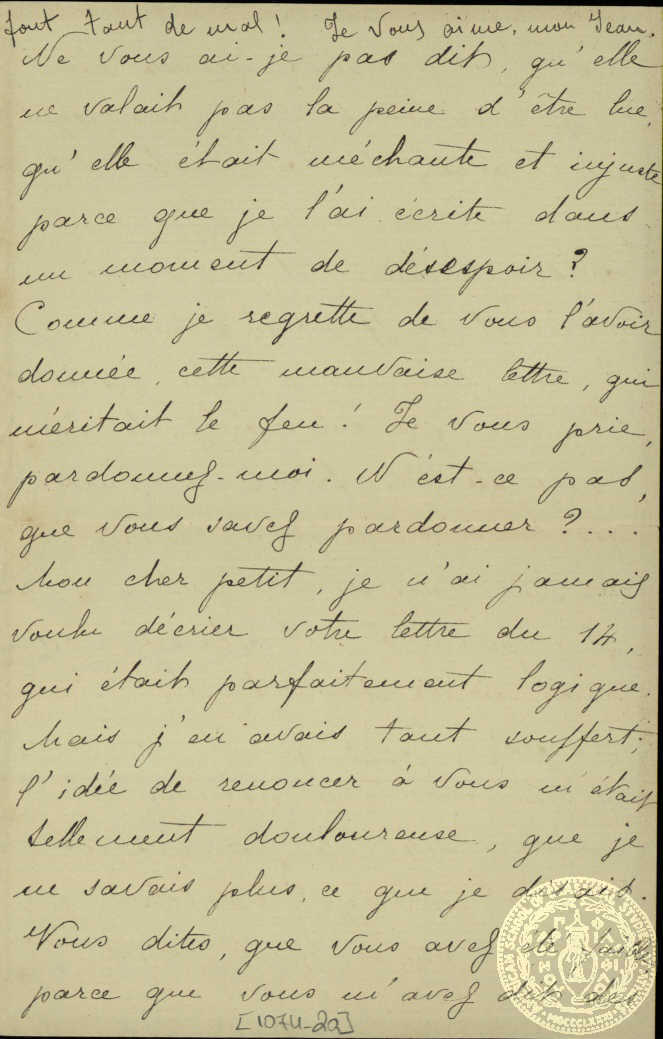 font tant de mal! Je vous aime, mon Jean.
Ne vous ai-je pas dit, qu'elle
ne valait pas la peine d'être lue,
qu'elle était méchante et injuste
parce que je l'ai écrite dans
un moment de désespoir?
Comme je regrette de vous l'avoir
donnée, cette mauvaise lettre, qui
méritait le feu! Je vous prie,
pardonnez-moi. N'est-ce pas,
que vous savez pardonner?...
Mon cher petit, je n'ai jamais
voulu décrier votre lettre du 14,
qui était parfaitement logique.
Mais j'en avais tant souffert;
l'idée de renoncer à vous m'était
tellement douloureuse, que je
ne savais plus, ce que je disais.
Vous dites, que vous avez été faible,
parce que vous m'avez dit des
[1074-2a]